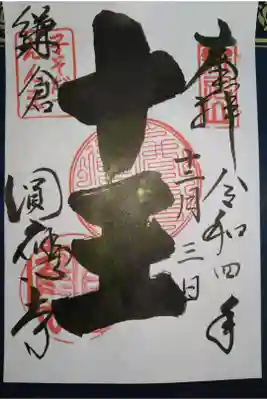 奉拝
令和四年
十二月三日
十王
鎌倉
圓應寺